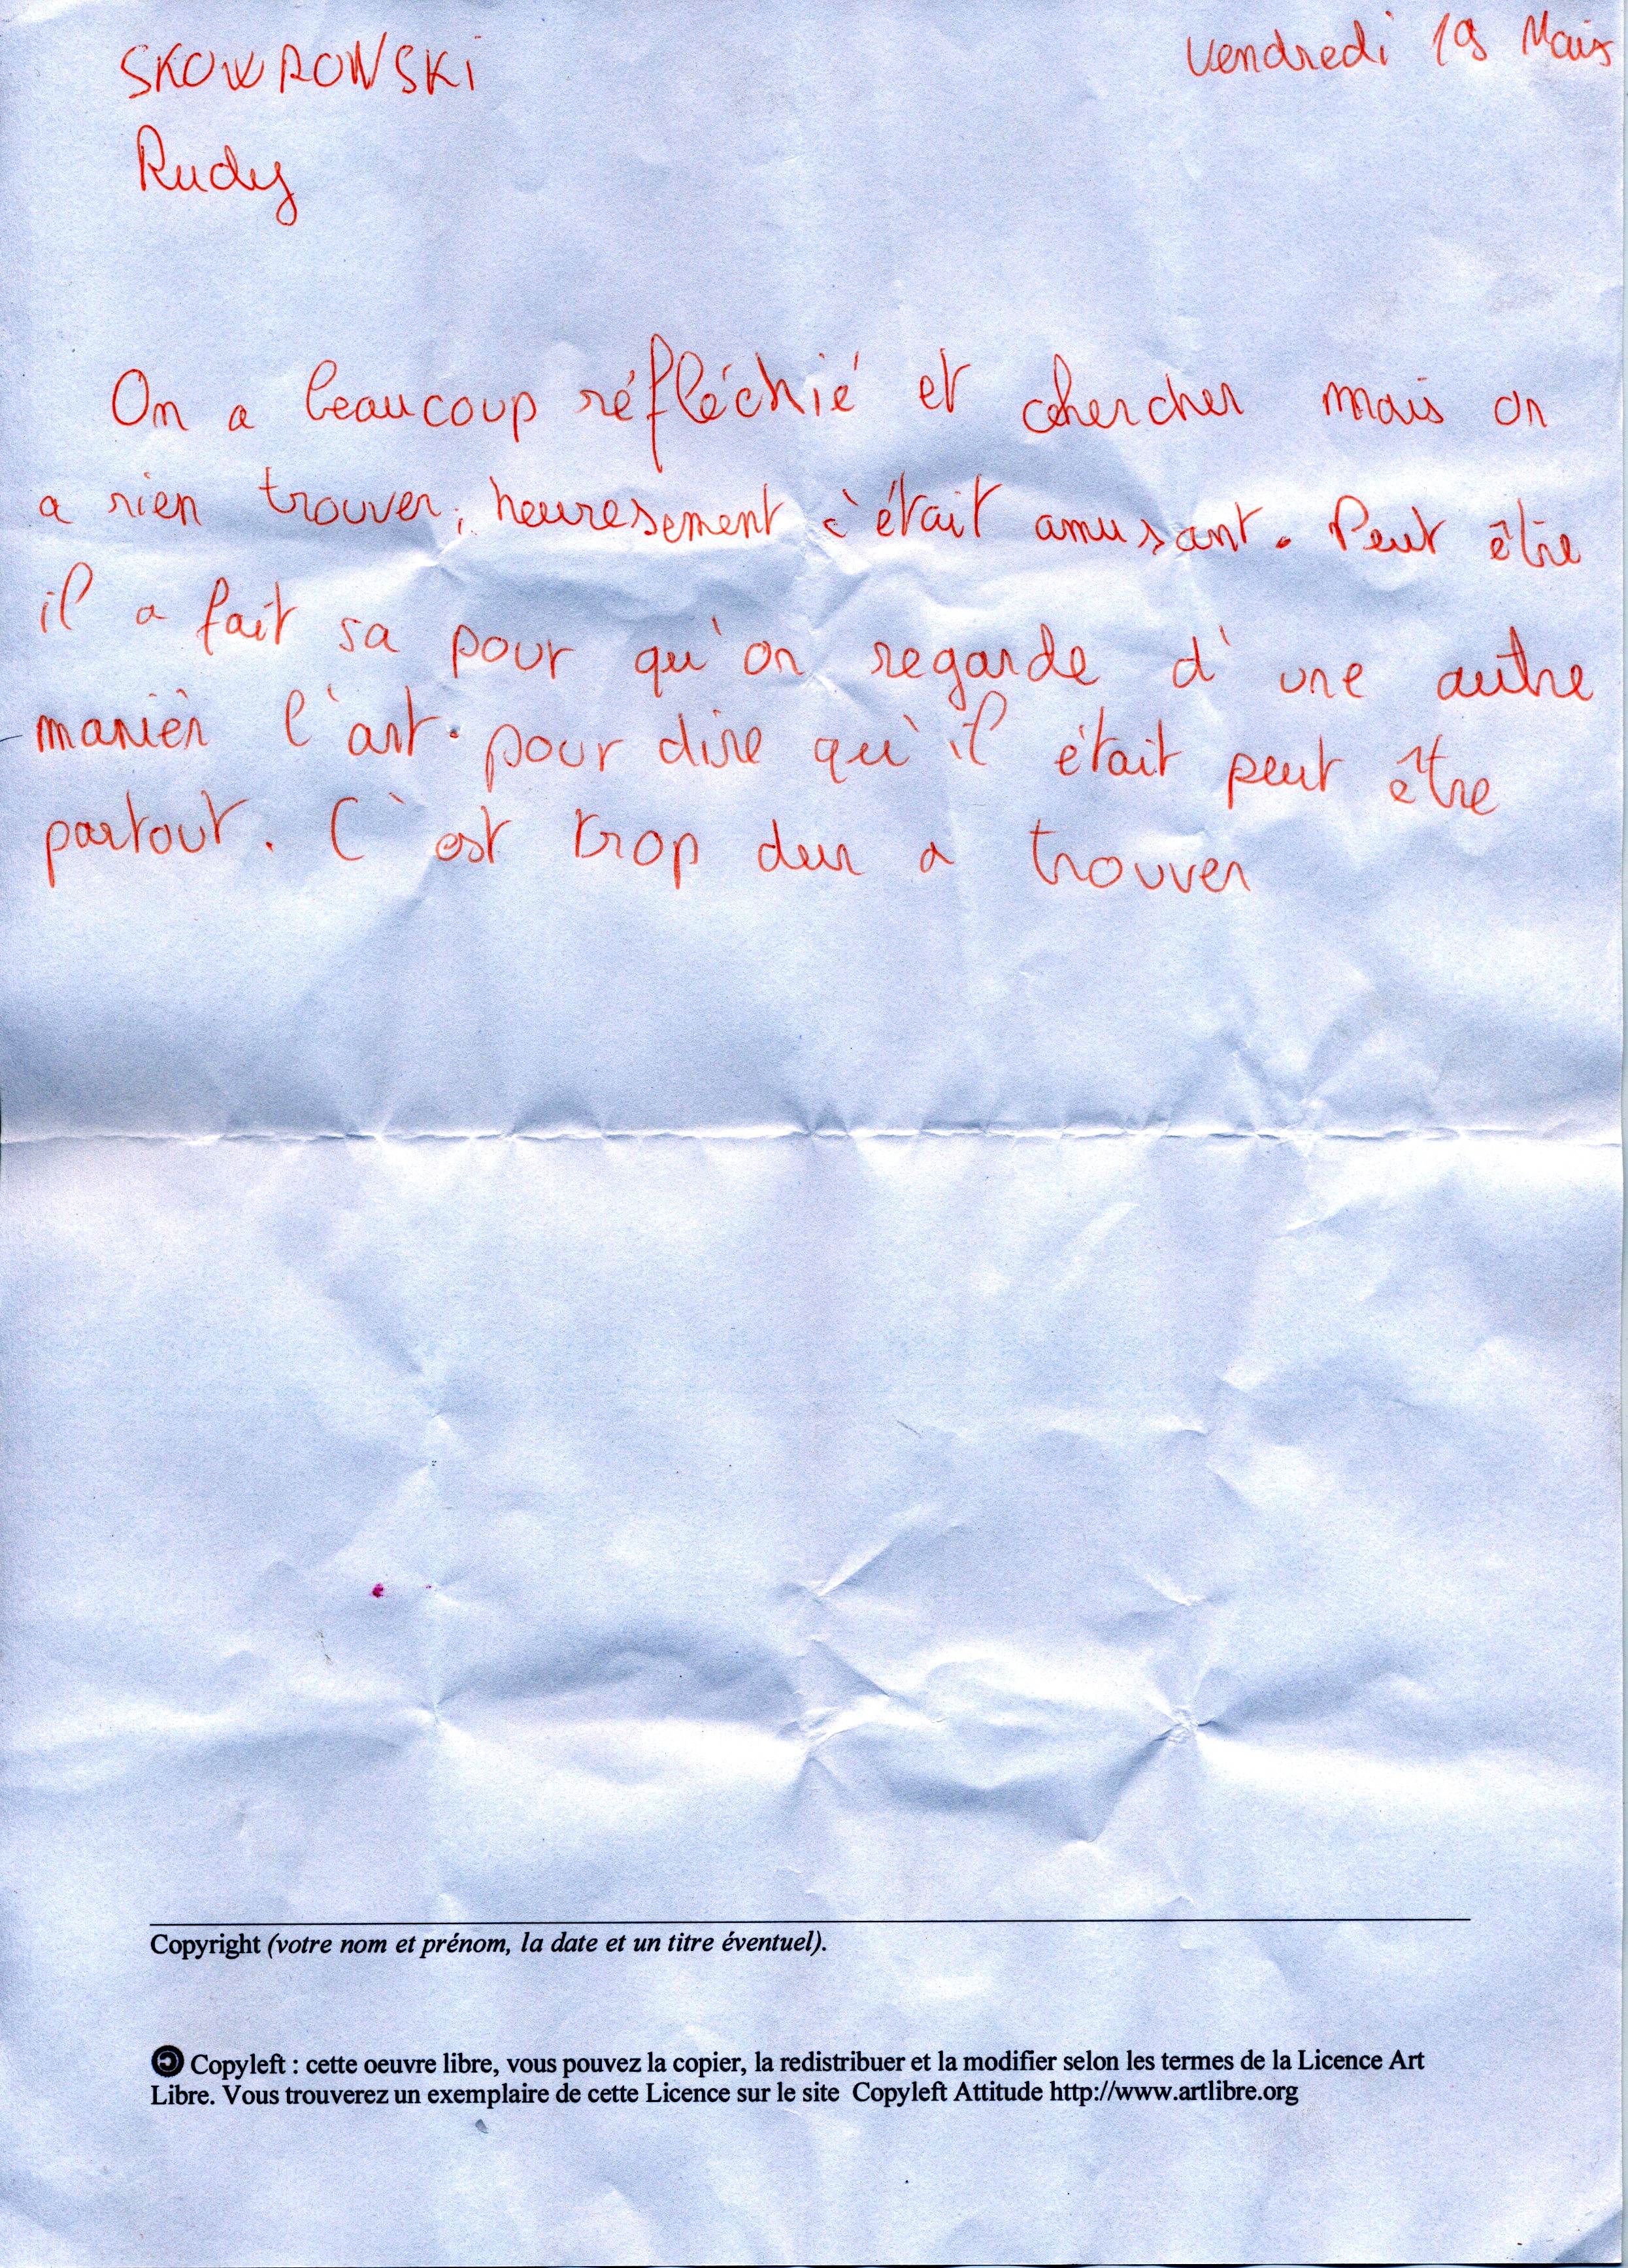 SKOWRONSKi
Vendredi 19 Mais
Rudy
On a beaucoup réfléchié et chercher mais on
a rien trouver, heuresement c'était amusant. Peut être
il a fait sa pour qu'on regarde d'une autre
manièr l'art. pour dire qu'il était peut être
partout. C'est trop dur a trouver
Copyright (votre nom et prénom, la date et un titre éventuel).
Copyleft : cette oeuvre libre, vous pouvez la copier, la redistribuer et la modifier selon les termes de la Licence Art
Libre. Vous trouverez un exemplaire de cette Licence sur le site Copyleft Attitude http://www.artlibre.org